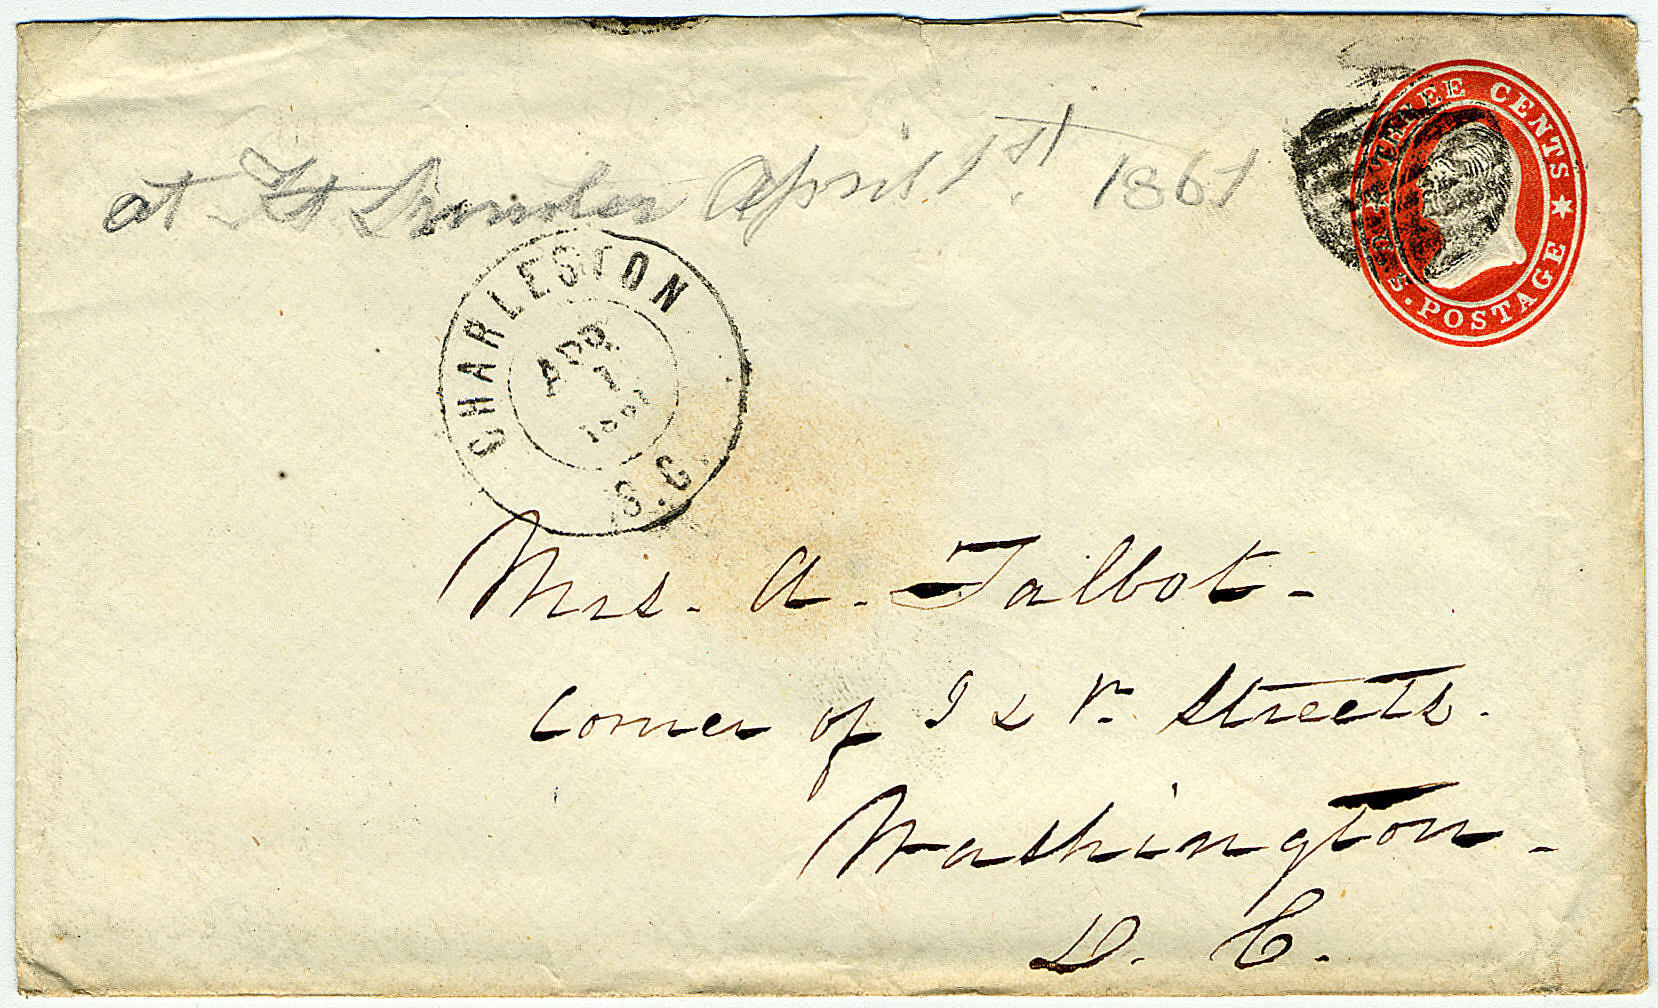 at Ft Sumter April 1st. 1861
THREE CENTS
U.S. POSTAGE
CHARLESTON
APR
1
S.C.
Mrs. A. Talbot.
Corner of I & Streets.
Washington.
D. C.